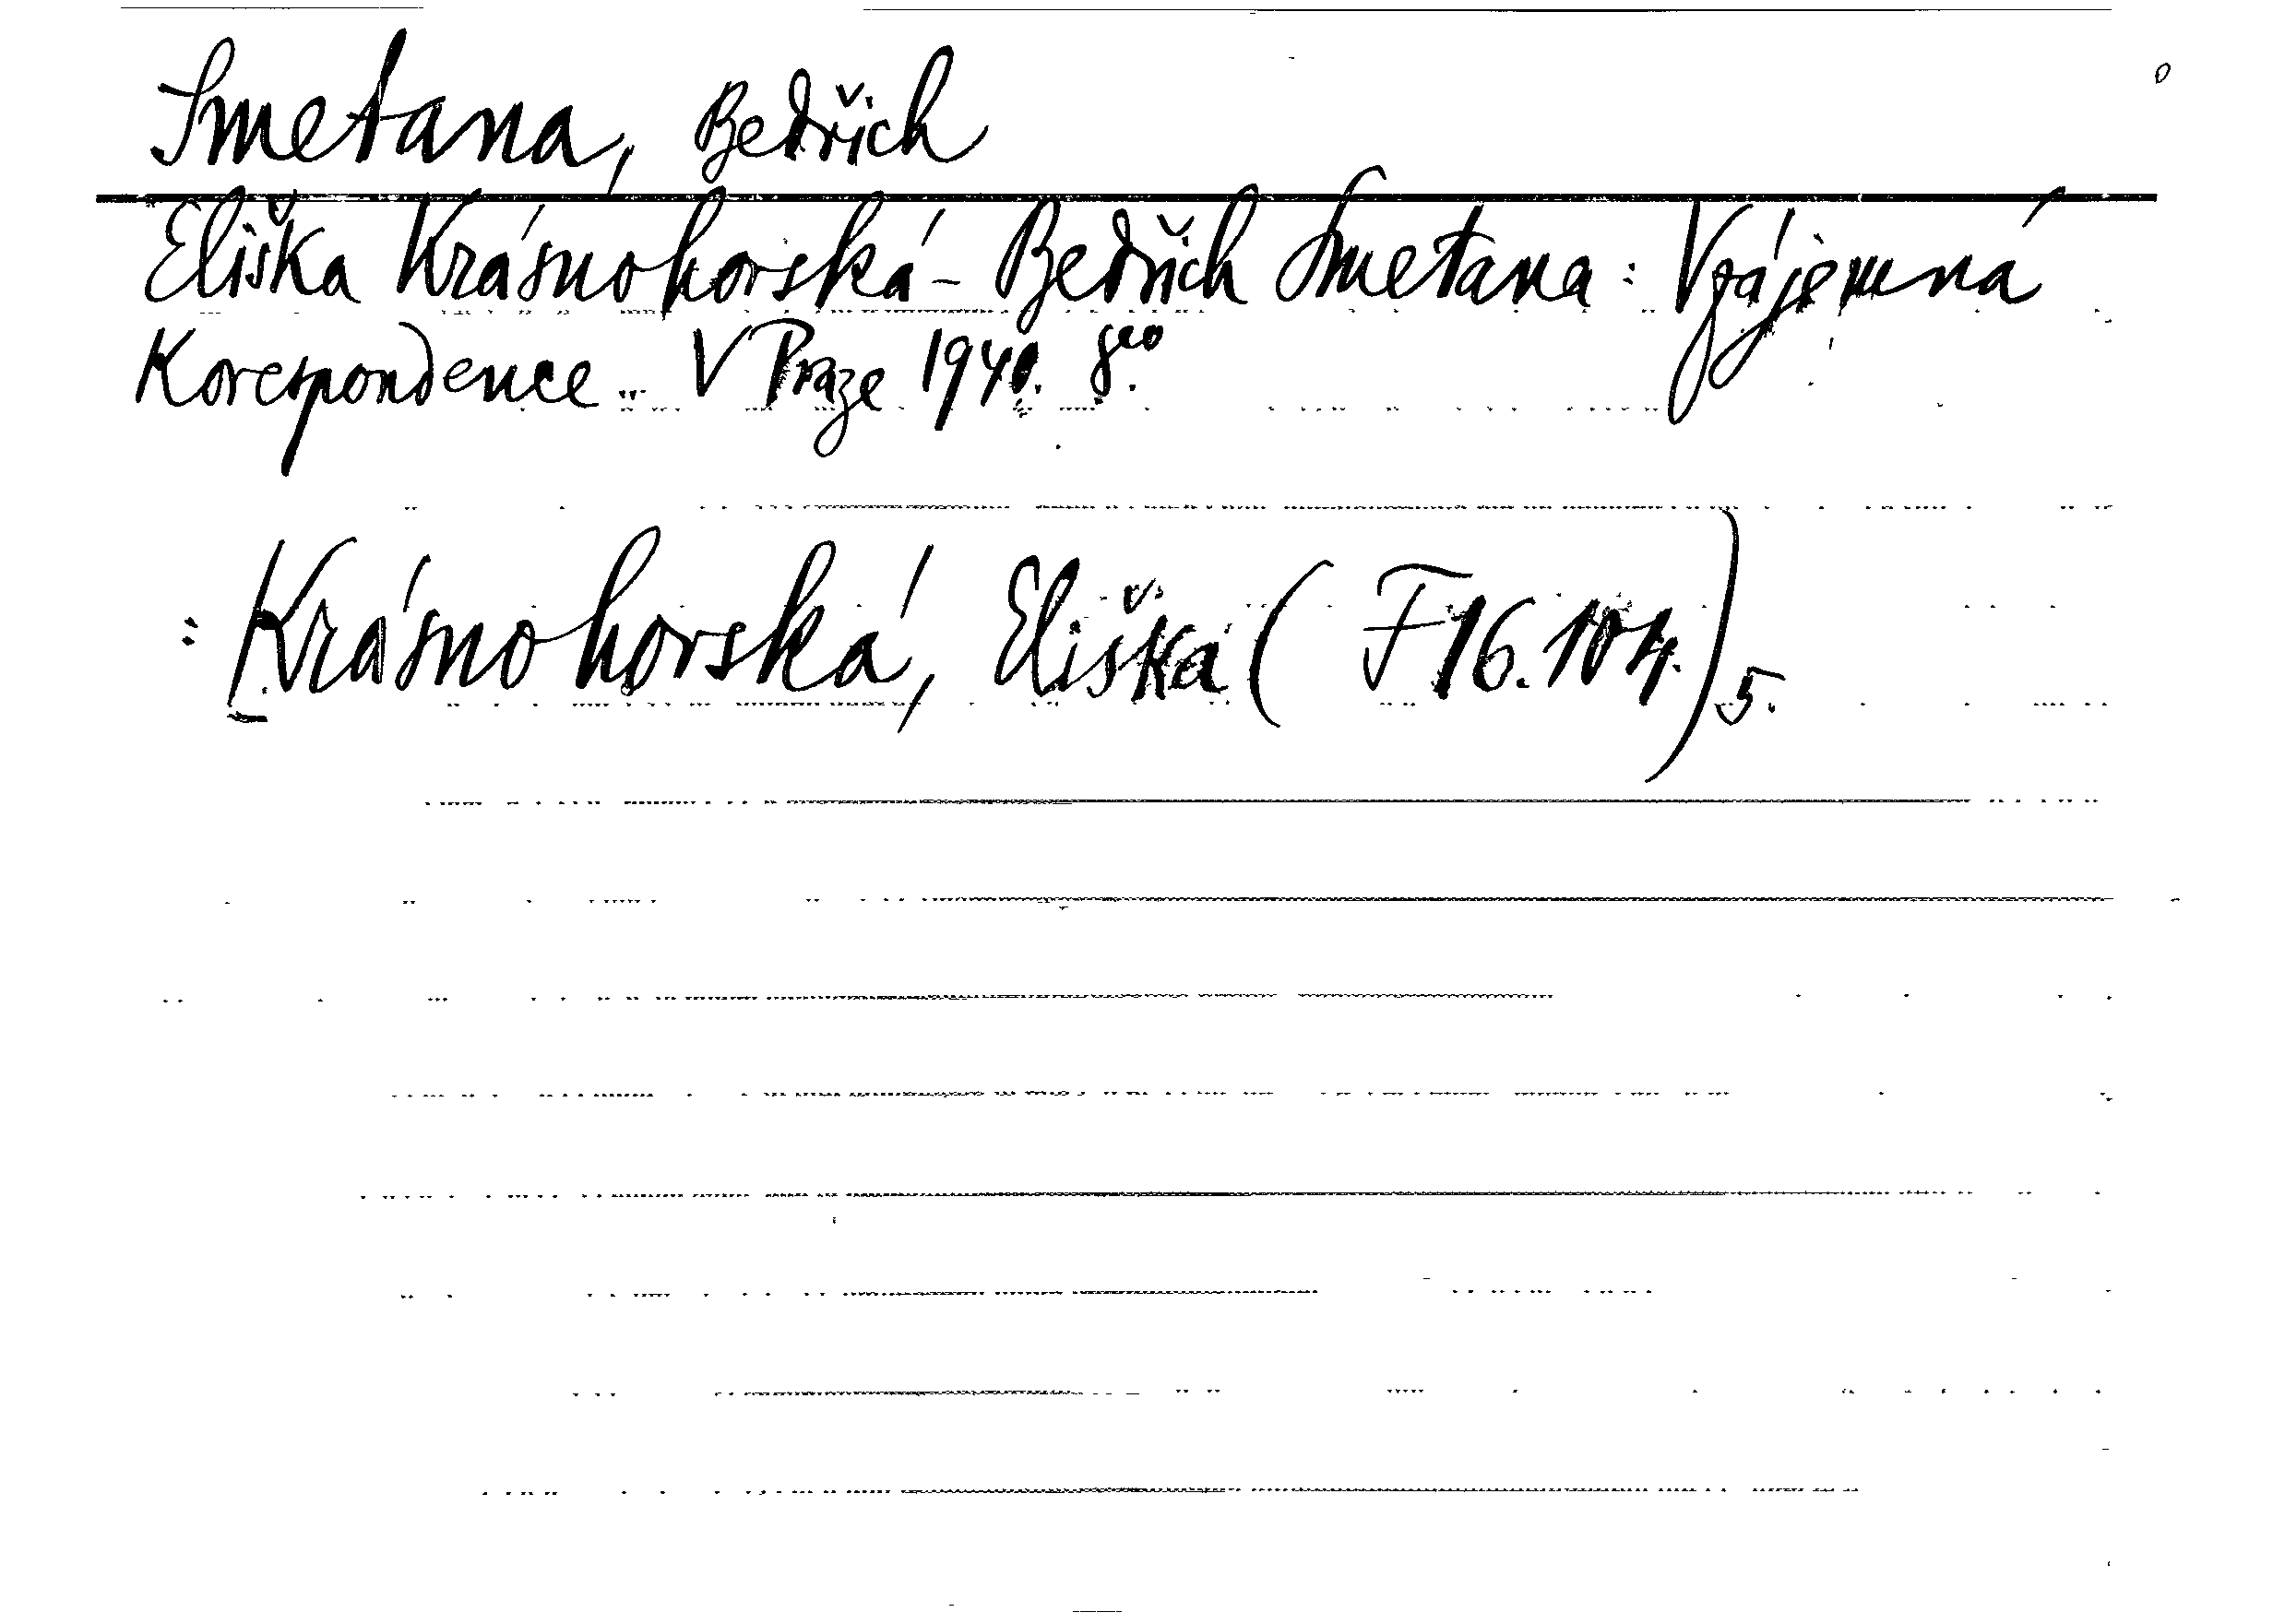 Smetana, Bedřich
Eliška Krásnohorská - Bedřich Smetana : Vzájemná
Korespondence. V Praze 1940. 8°.
: Krásnohorská, Eliška ( F 16.104.) 5.